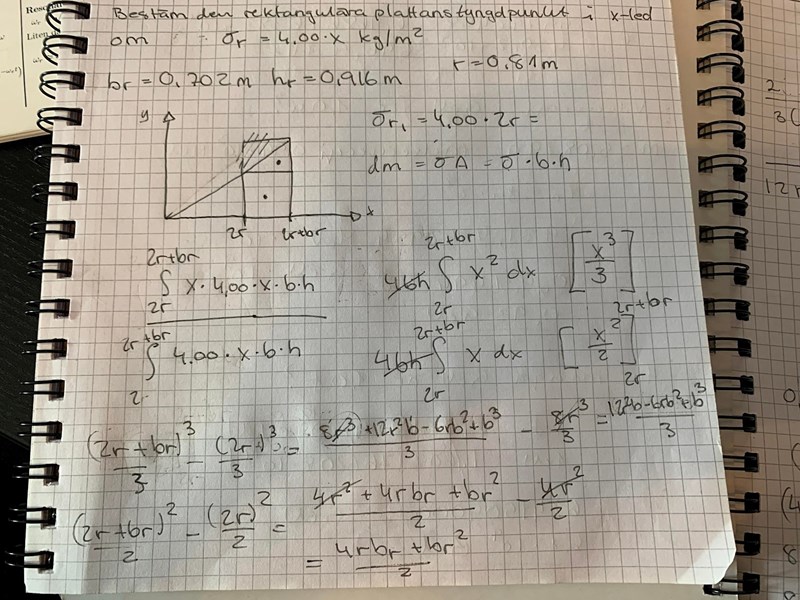 Bestäm den rektangulära plattans tyngdpunkt i x-led
om σr = 4,00·x kg/m²
r = 0,81m
br = 0,702m hr = 0,916m
y
x
2r 2r+br
σr₁ = 4,00·2r =
dm = σA = σ·b·h
2r+br
∫ x·4,00·x·b·h
2r
2r+br
∫ 4,00·x·b·h
2
2r+br
4bh ∫ x² dx [x³/3]
2r
2r+br
4bh ∫ x dx [x²/2]
2r
2r+br
2r
(2r+br)³/3 - (2r)³/3 = 8r³+12r²b-6rb²+b³/3 - 8r³/3 = 12r²b-6rb²+b³/3
(2r+br)²/2 - (2r)²/2 = 4r²+4rbr+br²/2 - 4r²/2
= 4rbr+br²/2